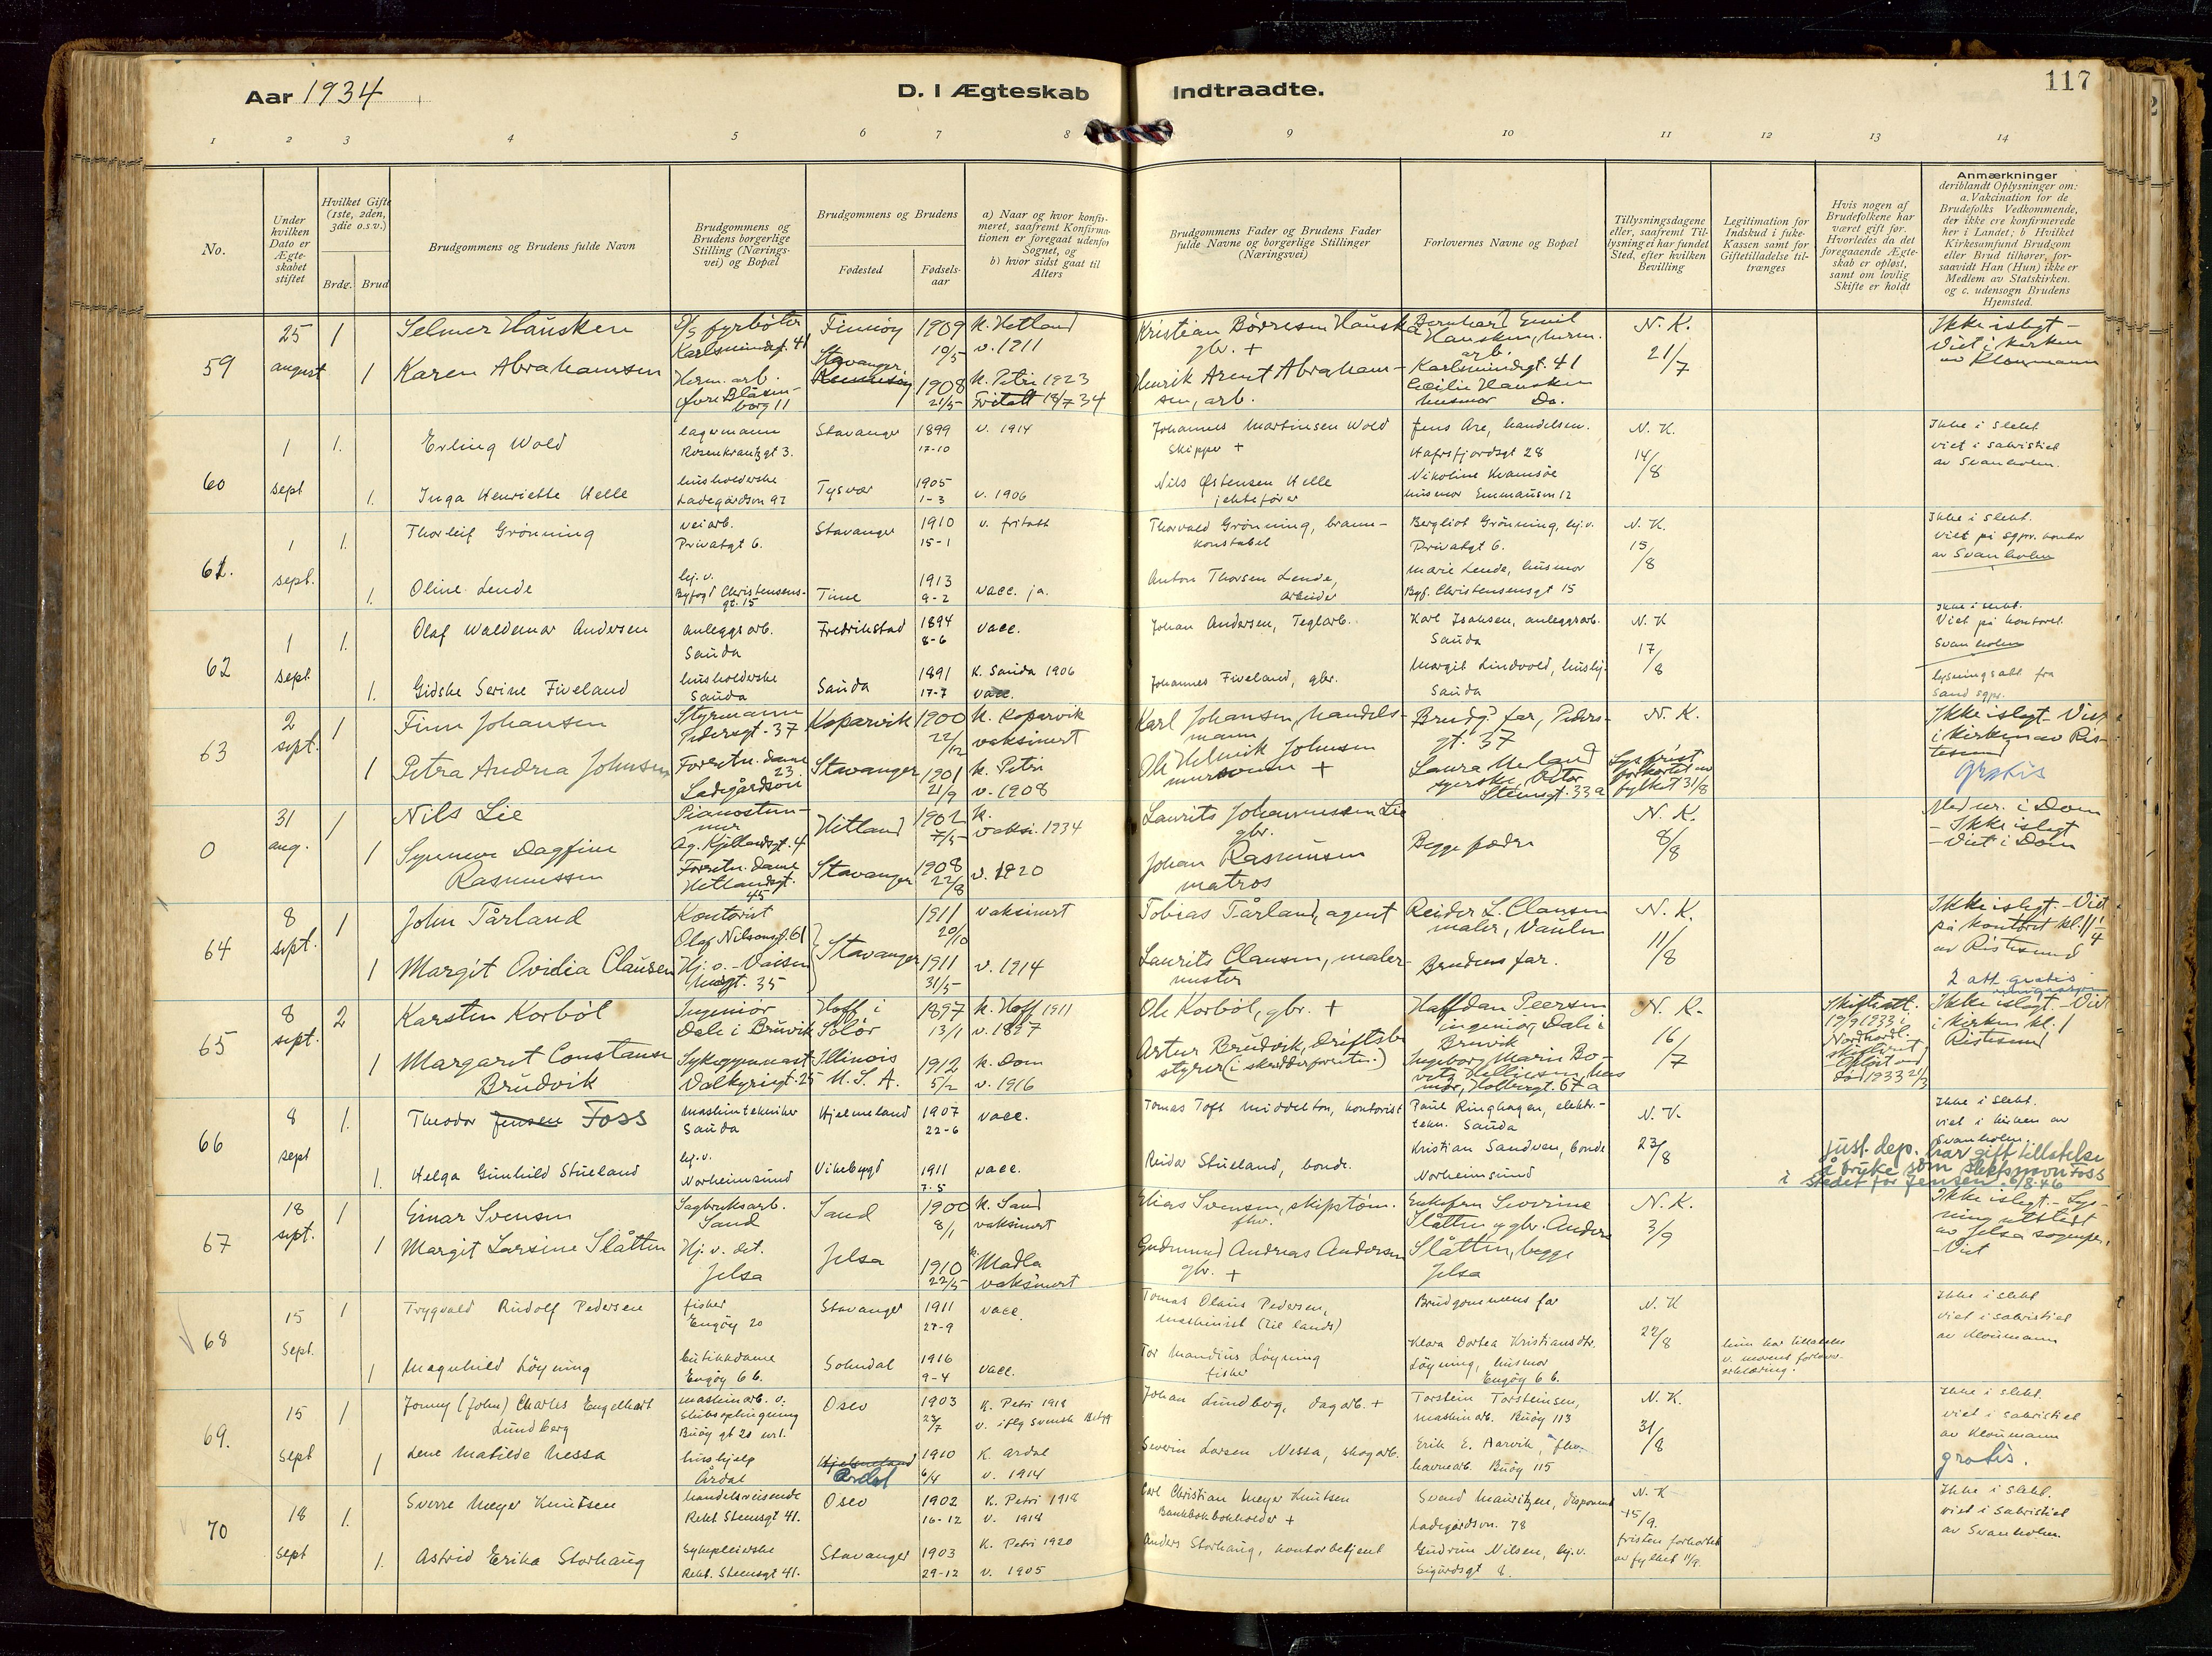 Aar 1934
D. I Ægteskab Indtraadte.
117
1 2 3 4 5 6 7 8 9 10 11 12 13 14
No.
Under hvilken Dato er Ægteskabet stiftet
Hvilket Gifte (1ste, 2den, 3die o.s.v.)
Brdg. Brud
Brudgommens og Brudens fulde Navn
Brudgommens og Brudens borgerlige Stilling (Næringsvei) og Bopæl
Brudgommens og Brudens
Fødested
Fødselsaar
a) Naar og hvor konfirmeret, saafremt Konfirmationen er foregaat udenfor Sognet, og
b) hvor sidst gaat til Alters
Brudgommens Fader og Brudens Fader fulde Navne og borgerlige Stillinger (Næringsvei)
Forlovernes Navne og Bopæl
Tillysningsdagene eller, saafremt Tillysning ei har fundet Sted, efter hvilken Bevilling
Legitimation for Indskud i fuke-Kassen samt for Giftetilladelse tiltrænges
Hvis nogen af Brudefolkene har været gift før. Hvorledes da det foregaaende Ægteskab er opløst, samt om lovlig Skifte er holdt
Anmærkninger
deriblandt Oplysninger om: a. Vakcination for de Brudefolks Vedkommende, der ikke ere konfirmerede her i Landet; b Hvilket Kirkesamfund Brudgom eller Brud tilhører, forsaavidt Han (Hun) ikke er Medlem av Statskirken. og c. udensogn Brudens Hjemsted.
59 25 august 1 Selmer Hausken D/s fyrbøter Karlsmindegt. 41 Finnøy 1909 10/5 K. Hetland v. 1911 Kristian Børresen Hausken gbr. + Bernhard Emil Hausken, herm. arb. Karlsmindegt. 41 N. K. 21/7 Ikke i slegt - Viet i kirken av Kloumann
1 Karen Abrahamsen Herm. arb. Øvre Blåsenborg 11 Stavanger Rennesøy 1908 21/5 K. Petri 1923 Fritatt 18/7 34 Henrik Arent Abrahamsen, arb. Cecilie Hausken husmor Do.
60 1 sept 1. Erling Wold lagermann Rosenkrantzgt 3. Stavanger 1899 17-10 v. 1914 Johannes Martinsen Wold skipper + Jens Are, handelsm. Hafrsfjordsgt 28 N. K. 14/8 Ikke i slekt viet i sakristiet av Svanholm.
1. Inga Henriette Helle husholderske Ladegårdsvn 92 Tysvær 1905 1-3 v. 1906 Nils Østensen Helle jektefører Nikoline Kvamsøe husmor Emmausvn 12
61. 1 sept. 1. Thorleif Grönning veiarb. Privatgt 6. Stavanger 1910 15-1 v. fritatt Thorvald Grönning, brannkonstabel Bergliot Grönning, hj.v. Privatgt 6. N. K. 15/8 Ikke i slekt. viet på sgpr. kontor av Svanholm
1. Oline Lende hj. v. Byfogd Christensensgt. 15 Time 1913 9-2 vacc. ja. Anton Thorsen Lende, arbeider Marie Lende, husmor Byf. Christensensgt 15
62 1 sept. 1. Olaf Waldemar Andersen anleggsarb. Sauda Fredrikstad 1894 8-6 vacc. Johan Andersen, Teglarb. Karl Isaksen, anleggsarb. Sauda N. K 17/8 Ikke i slekt. Viet på kontoret Svanholm
1. Gidske Serine Fiveland husholderske Sauda Sauda 1891 17-7 K. Sauda 1906 vacc. Johannes Fiveland, gbr. Margit Lindvold, hushj. Sauda lysningsatt fra Sand sgpr.
63 2 sept. 1 Finn Johansen Styrmann Pedersgt. 37 Kopervik 1900 22/12 K. Kopervik vaksinert Karl Johansen, handelsmann Brudg. far, Pedersgt. 37 N. K. Ikke i slegt - Viet i kirken av Ristesund
1 Petra Andrea Johnsen Forretn. dame Ladegårdsvn 23 Stavanger 1901 21/9 K. Petri v. 1908 Ole Helmik Johnsen mursvenn + Laura Meland syerske, Stensgt. 33a Lys.frist forkortet av fylket 31/8 gratis
0 31 aug. 1 Nils Lie Pianostemmer Ag. Kjellandsgt. 4 Hetland 1902 7/5 K. vaksi. 1934 Laurits Johannessen Lie gbr. Begge fædre N. K. 8/8 Med nr. i Dom - Ikke i slegt - Viet i Dom
1 Synnøve Dagfine Rasmussen Forretn. dame Hetlandsgt. 45 Stavanger 1908 22/8 v. 1920 Johan Rasmussen matros
64 8 sept. 1 John Tårland Kontorist Olaf Nilsensgt. 61 Stavanger 1911 20/10 vaksinert Tobias Tårland, agent Reidar L. Clausen maler, Vaulen N. K. 11/8 Ikke i slegt. - Viet på kontoret kl. 11 1/4 av Ristesund
1 Margit Ovidia Clausen Hj. v. - Vaisenhusgt. 35 1911 31/5 v. 1914 Laurits Clausen, malermester Brudens far. 2 att. gratis
65 8 sept. 2 Karsten Korböl Ingeniör Dale i Bruvik Hoff i Solör 1897 13/1 K. Hoff 1911 v. 1897 Ole Korböl, gbr. + Halfdan Peersen ingeniør, Dale i Bruvik N. K. 16/7 Skifteatt. 19/9 1933 i Nordhordl. Ikke i slegt - Viet i kirken kl. 1 Ristesund
1 Margaret Constanse Brudvik Sykegymnast Valkyriegt. 25 Illinois U. S. A. 1912 5/2 K. Dom v. 1916 Artur Brudvik, Driftsbestyrer (i skredderforretn.) Ingeborg Marie Hellesen, husmor, Holbergt. 67a
66 8 sept 1. Theodor Jensen Foss maskintekniker Sauda Hjelmeland 1907 22-6 vacc. Tomas Toft Middelton, kontorist Paul Ringhagen, elektr.tekn. Sauda N. K. 23/8 Ikke i slekt. viet i kirken av Svanholm.
1. Helga Gunhild Stueland hj. v. Norheimsund Vikebygd 1911 7-5 vacc. Reidar Stueland, bonde. Kristian Sandven, bonde Norheimsund
Just. dep. har gitt tillatelse å bruke som slektsnavn Foss i stedet for Jensen. 6/8-46
67 18 sept. 1 Einar Svensen Sagbruksarb. Sand Sand 1900 8/1 K. Sand vaksinert Elias Svensen, skipstøm. fhv. Enkefru Severine Slåtten N. K. 3/9 Ikke i slegt - Lysning utstedt av Jelsa sogepr. - Viet
1 Margit Larsine Slåtten Hj. v. det. Jelsa Jelsa 1910 22/5 K. Madla vaksinert Gudmund Andreas Andersen gbr. + og gbr. Anders Slåtten, begge Jelsa
68 15 Sept. 1 Trygvald Rudolf Pedersen fisker Engöy 20 Stavanger 1911 27-9 vacc. Tomas Olaus Pedersen, maskinist (til lands) Brudgommens far N. K 22/8 Ikke i slekt viet i sakristiet av Kloumann
1 Magnhild Löyning butikkdame Engöy 66. Sokndal 1916 9-4 vacc. Tor Mandius Löyning fisker Klara Dortea Kristiansdtr. Löyning, husmor Engöy 66. hun har tillatelse v. morens forlover-erklæring.
69. 15 Sept 1 Jonny (John) Charles Engelhart Lundberg maskinarb. v. Stubsophugning Buöy gt 20 Oslo 1903 23/7 K. Petri 1918 v. iflg svensk Johan Lundberg, dagarb. + Torstein Torsteinsen, maskinarb. Buöy 113 N. K. 31/8 Ikke i slekt. viet i sakristiet av Kloumann
1 Lene Matilde Nessa hushjelp Årdal Hjelmeland Årdal 1910 6/4 K. Ardal v. 1914 Severin Larsen Nessa, skogarb. Erik E. Aarvik, fhv. havnearb. Buöy 115 gratis.
70 18 Sept 1. Sverre Meyer Knutsen handelsreisende Rekt Steensgt 41. Oslo 1902 16-12 K. Petri 1918 v. 1918 Carl Christian Meyer Knutsen Bankbokholder + Svend Mauritzen, disponent Ladegårdsvn. 78 N. K 15/9. Ikke i slekt. viet i sakristiet av Svanholm.
1. Astrid Erika Storhaug sykepleierske Rekt. Steensgt 41. Stavanger 1903 29-12 K. Petri 1920 v. 1905 Anders Storhaug, kontorbetjent Gudrun Nilsen, hj.v. Sigurdsgt 8. fristen forkortet av fylket 11/9.